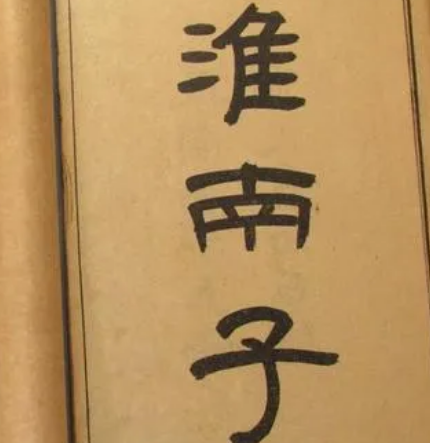 淮南子